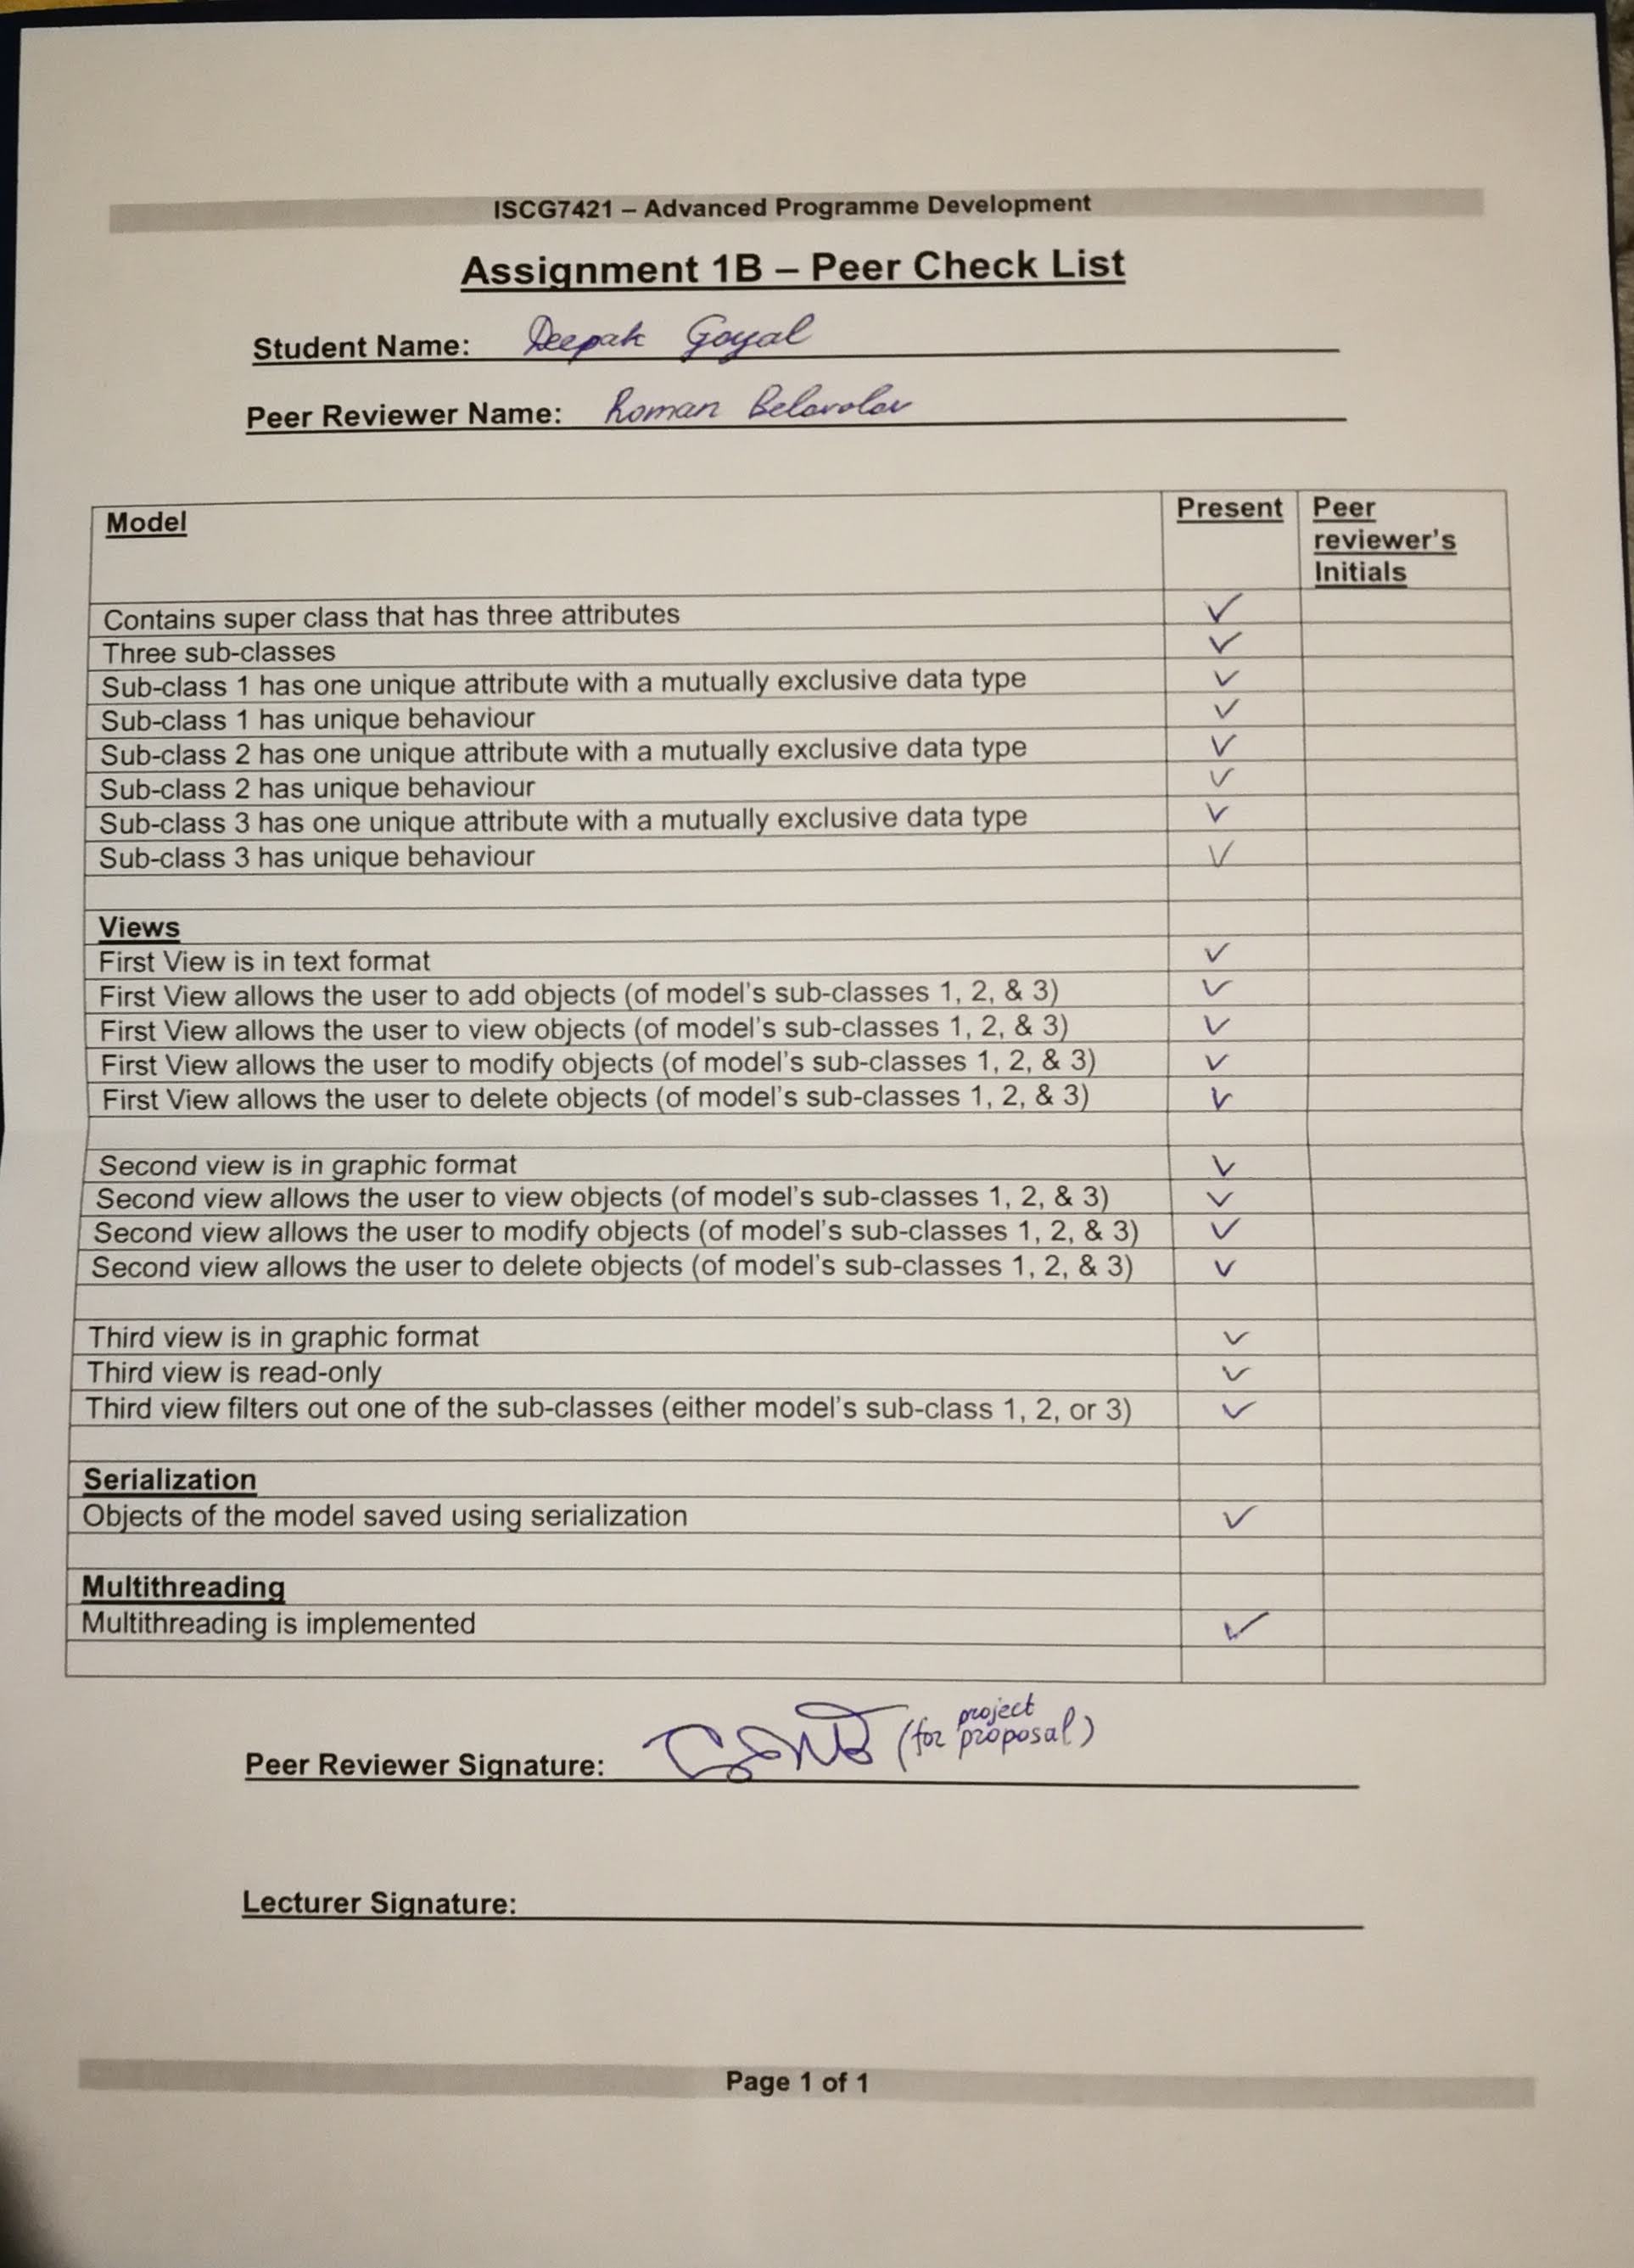 ISCG7421 – Advanced Programme Development
Assignment 1B – Peer Check List
Student Name: Deepak Goyal
Peer Reviewer Name: Roman Belovolov
Model Present Peer reviewer's Initials
Contains super class that has three attributes ✓
Three sub-classes ✓
Sub-class 1 has one unique attribute with a mutually exclusive data type ✓
Sub-class 1 has unique behaviour ✓
Sub-class 2 has one unique attribute with a mutually exclusive data type ✓
Sub-class 2 has unique behaviour ✓
Sub-class 3 has one unique attribute with a mutually exclusive data type ✓
Sub-class 3 has unique behaviour ✓
Views
First View is in text format ✓
First View allows the user to add objects (of model's sub-classes 1, 2, & 3) ✓
First View allows the user to view objects (of model's sub-classes 1, 2, & 3) ✓
First View allows the user to modify objects (of model's sub-classes 1, 2, & 3) ✓
First View allows the user to delete objects (of model's sub-classes 1, 2, & 3) ✓
Second view is in graphic format ✓
Second view allows the user to view objects (of model's sub-classes 1, 2, & 3) ✓
Second view allows the user to modify objects (of model's sub-classes 1, 2, & 3) ✓
Second view allows the user to delete objects (of model's sub-classes 1, 2, & 3) ✓
Third view is in graphic format ✓
Third view is read-only ✓
Third view filters out one of the sub-classes (either model's sub-class 1, 2, or 3) ✓
Serialization
Objects of the model saved using serialization ✓
Multithreading
Multithreading is implemented ✓
Peer Reviewer Signature: (for project proposal)
Lecturer Signature:
Page 1 of 1